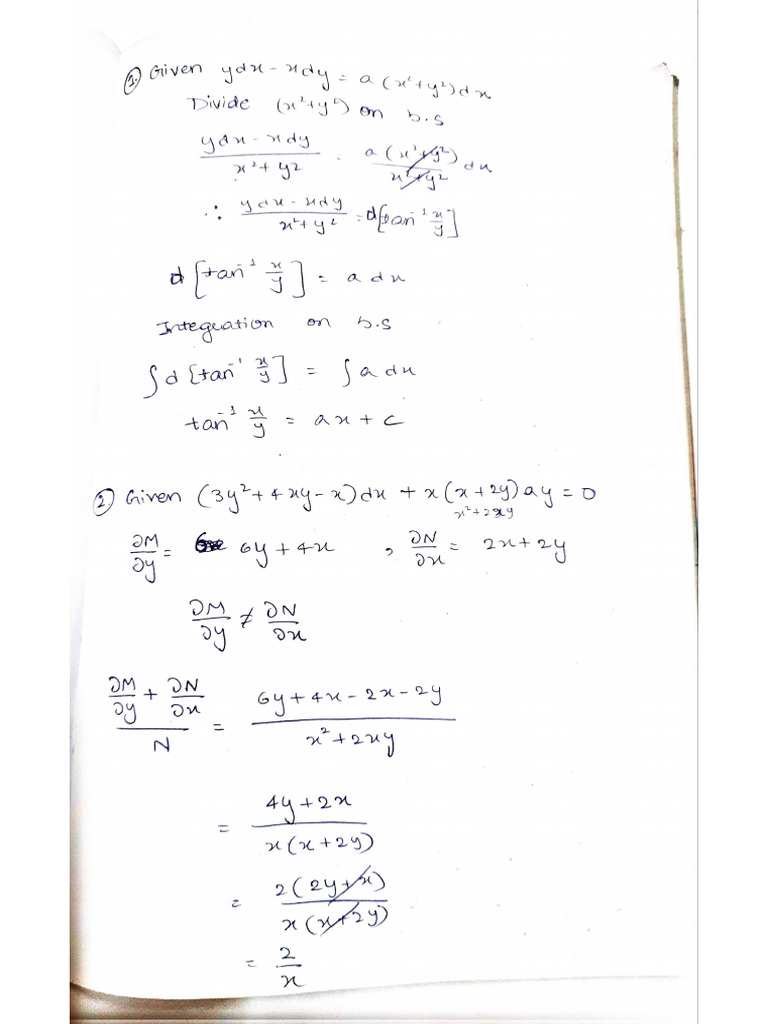 1. Given ydx - xdy = a(x²+y²)dx
Divide (x²+y²) on b.s
ydx - xdy / x²+y² . a(x²+y²) / x²+y² dx
∴ ydx - xdy / x²+y² = d[tan⁻¹ x/y]
d[tan⁻¹ x/y] = adx
Integuation on b.s
∫d[tan⁻¹ x/y] = ∫adx
tan⁻¹ x/y = ax + c
2. Given (3y²+4xy-x)dx + x(x+2y)ay = 0
x²+2xy
∂M/∂y = 6y+4x , ∂N/∂x = 2x+2y
∂M/∂y ≠ ∂N/∂x
∂M/∂y + ∂N/∂x / N = 6y+4x-2x-2y / x²+2xy
= 4y+2x / x(x+2y)
= 2(2y+x) / x(x+2y)
= 2/x